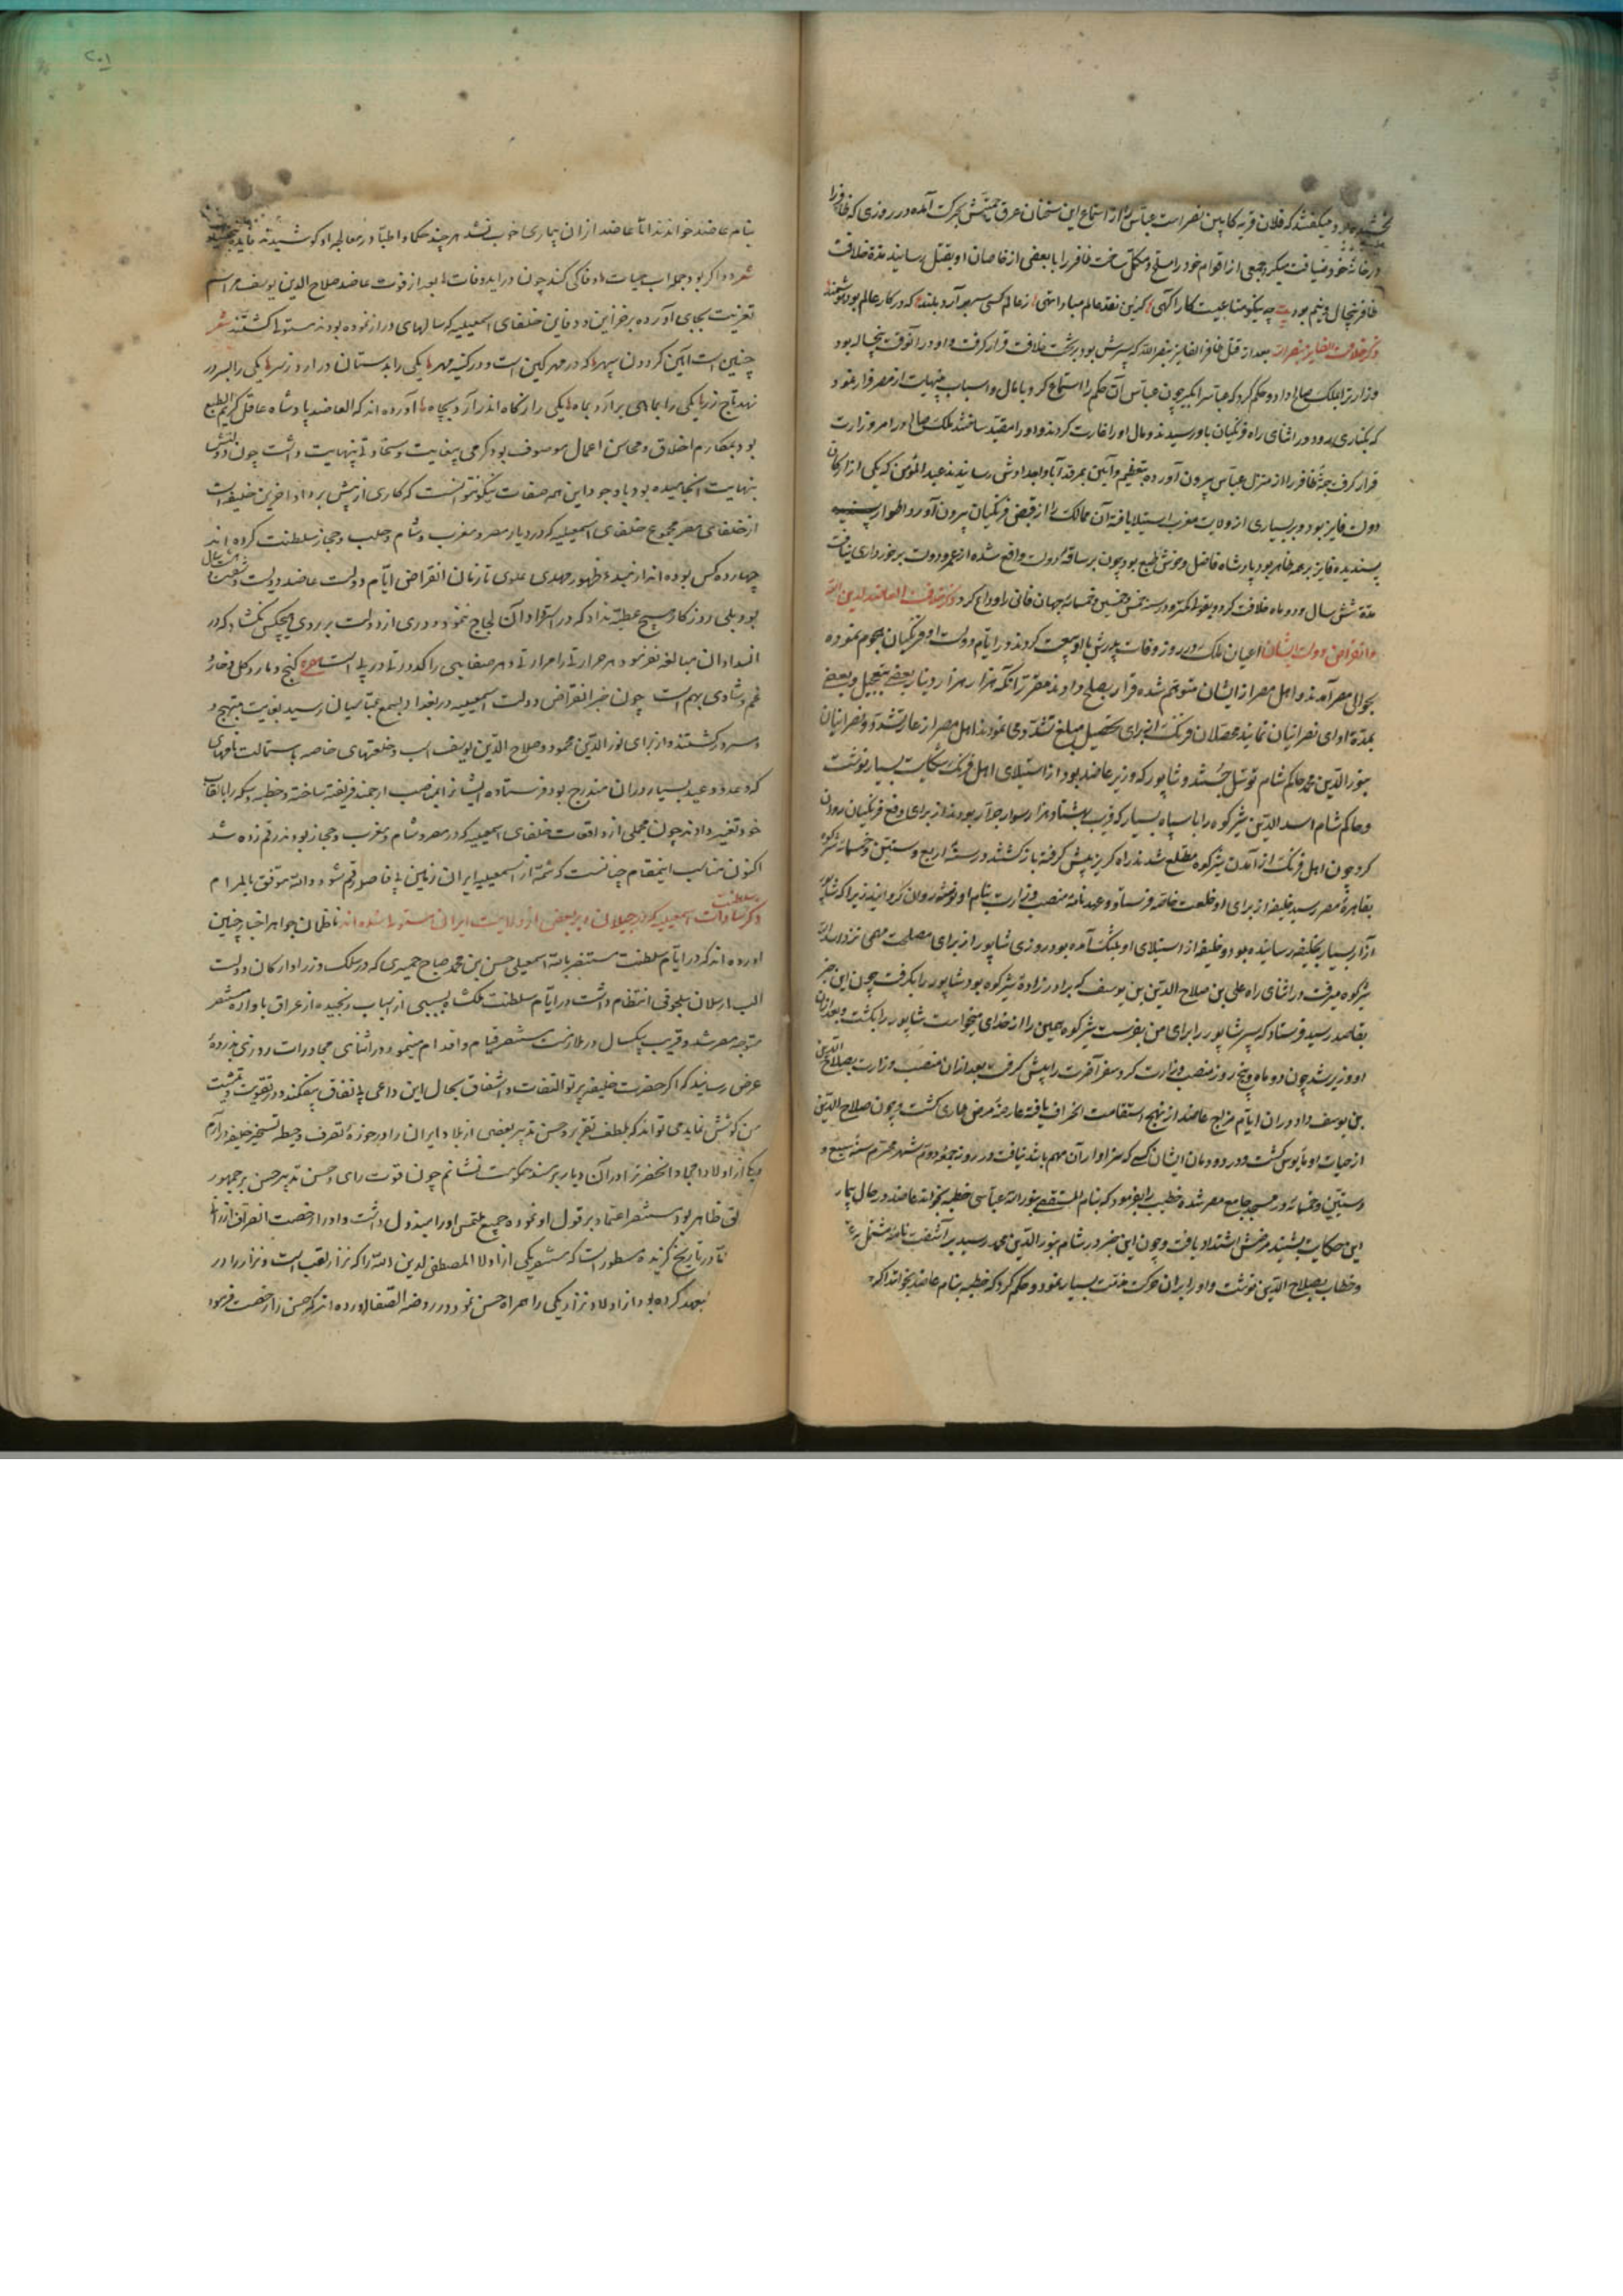 بخشیده بود و میگفتند که فلان قریه کابین نصر است عباس را از استماع این سخنان عرق حمیتش بحرکت آمده در روزی که ظافر را
در خانهٔ خود ضیافت میکرد جمعی از اقوام خود را مسلح و مکمل ساخت ظافر را با بعضی از خاصان او بقتل رسانید مدة خلافت
ظافر پنجسال و نیم بود چه نیکو متاعیست کار آکهی کزین نقد عالم مبادا تهی ز عالم کسی سر برآرد بلند که در کار عالم بود هوشمند
ذکر خلافت الفایز بنصر الله بعد از قتل ظافر الفایز بنصر الله که پسرش بود بر تخت خلافت قرار گرفت و او در آنوقت پنجساله بود
وزارت بملک صالح داد و حکم کرد که عباس را بگیرند چون عباس آن حکم را استماع کرد با مال و اسباب بینهایت از مصر فرار نمود
که بکناری رود در اثنای راه فرنگیان باو رسیدند و مال او را غارت کردند و او را مقید ساختند ملک صالح در امر وزارت
قرار گرفت جثهٔ ظافر را از منزل عباس بیرون آورده بتعظیم و آیین بمرقد آبا و اجداوش رسانیدند عبد المؤمن که یکی از ارکان
دولت فایز بود و بر بسیاری از ولایت مغرب استیلا یافته آن ممالک را از قبض فرنگیان بیرون آورد و اطوار
پسندیده فایز بر همه ظاهر بود پادشاه فاضل و خوش طبع بود چون بر ساقهٔ دولت واقع شده از عمر و دولت برخورداری نیافت
مدة شش سال و دو ماه خلافت کرد و در سنهٔ خمس و خمسین و خمسمائه جهان فانی را وداع کرد ذکر خلافت العاضد لدین الله
و انقراض دولت ایشان اعیان ملک در روز وفات پدرش با او بیعت کردند و در ایام دولت او فرنگیان هجوم نموده
بحوالی مصر آمدند و اهل مصر از ایشان متوهم شده قرار بصلح دادند مقرر آنکه هزار هزار دینار بعضی بتعجیل و بعضی
بمدة ادای نصرانیان نمایند محصلان فرنگ از برای تحصیل مبلغ تشدد می نمودند اهل مصر از عار تشدد نصرانیان
بنور الدین محمد حاکم شام توسل جستند و شاپور که وزیر عاضد بود از استیلای اهل فرنگ شکایت بسیار نوشت
و حاکم شام اسد الدین شیرکوه را با سپاه بسیار که قریب بهشتاد هزار سوار جرار بودند از برای دفع فرنگیان روان
کرد چون اهل فرنگ از آمدن شیرکوه مطلع شدند راه گریز پیش گرفته بازگشتند در سنهٔ اربع و ستین و خمسمائه شیرکوه
بقاهرهٔ مصر رسید خلیفه از برای او خلعت خاصه فرستاد و عهدنامه منصب وزارت بنام او نوشته روان گردانید زیرا که شاپور
آزار بسیار بخلیفه رسانیده بود و خلیفه از استیلای او بتنگ آمده بود روزی شاپور از برای مصلحت مهمی نزد اسد الدین
شیرکوه میرفت در اثنای راه علی بن صلاح الدین بن یوسف که برادرزادهٔ شیرکوه بود شاپور را بگرفت چون این خبر
بقاصد رسید فرستاد که سر شاپور را برای من بفرست شیرکوه همین را از خدای میخواست شاپور را بکشت و بعد از آن
او وزیر شد چون دو ماه و پنج روز منصب وزارت کرد سفر آخرت را پیش گرفت بعد از آن منصب وزارت بصلاح الدین
بن یوسف داد در آن ایام مزاج عاضد از نهج استقامت انحراف یافته عارضهٔ مرض طاری گشت و چون صلاح الدین
از حیات او مأیوس گشت و در دودمان ایشان کسی که سزاوار آن مهم باشد نیافت در روز جمعه دوم شهر محرم سنهٔ سبع و
و ستین و خمسمائه در مسجد جامع مصر شده خطیب را بفرمود که بنام المستضئ بنور الله عباسی خطبه بخواند عاضد در حال بیماری
این حکایت بشنید مرضش اشتداد یافت و چون این خبر در شام بنور الدین محمد رسید برآشفت نامهٔ مشتمل بر عتاب
و خطاب بصلاح الدین نوشت و او را بر آن حرکت مذمت بسیار نمود و حکم کرد که خطبه بنام عاضد بخوانند اگرچه
۲۰۱
بنام عاضد خواندند اما عاضد از آن بیماری خوب نشد هر چند حکما و اطبا در معالجه او کوشیدند فایده نبخشید
شعر دوا گر بود جمله آب حیات وفا کی کند چون درآید وفات بعد از فوت عاضد صلاح الدین یوسف مراسم
تعزیت بجای آورده بر خزاین و دفاین خلفای اسمعیلیه که سالهای دراز نموده بودند مستولی گشتند شعر
چنین است آیین گردون سپهر که در مهر کین است و در کینه مهر یکی را بدستان درآرد ز سر یکی را بسر بر
نهد تاج زر یکی را بماهی برآرد بماه یکی را ز گاه اندر آرد بچاه آورده اند که العاضد پادشاه عاقل کریم الطبع
بود بمکارم اخلاق و محاسن اعمال موصوف بود کرمی بیغایت و سخاوتی بینهایت داشت چون دولتشان
بنهایت انجامیده بود با وجود این همه صفات نیکو نتوانست که کاری از پیش برد او آخرین خلیفه است
از خلفای مصر مجموع خلفای اسمعیلیه که در دیار مصر و مغرب و شام و حلب و حجاز سلطنت کرده اند
چهارده کس بوده اند از مبدء ظهور مهدی علوی تا زمان انقراض ایام دولت عاضد دویست و شصت و هشت سال
بود بلی روزگار هیچ عطیه نداد که در استرداد آن لجاج ننمود و دری از دولت بر روی هیچکس نگشاد که در
انسداد آن مبالغه نفرمود هر حرارتی را مرارتی و هر صفایی را کدورتی در پی است مصرع گنج و مار و گل و خار و
غم و شادی بهم است چون خبر انقراض دولت اسمعیلیه در بغداد بسمع عباسیان رسید بغایت مبتهج و
مسرور گشتند و از برای نور الدین محمود و صلاح الدین یوسف اسب و خلعتهای خاصه با استمالت نامهای
که وعده و وعید بسیار در آن مندرج بود فرستاده ایشانرا بمناصب ارجمند فریفته ساخته و خطبه و سکه را بالقاب
خود تغییر دادند چون مجملی از واقعات خلفای اسمعیلیه که در مصر و شام و مغرب و حجاز بودند رقم زده شد
اکنون مناسب اینمقام چنانست که شمهٔ از اسمعیلیه ایران زمین بی فاصله رقم شود و الله موفق بالمرام
ذکر سلطنت سادات اسمعیلیه که در جیلان و بر بعضی از ولایت ایران مستولی شده اند ناظمان جواهر اخبار چنین
آورده اند که در ایام سلطنت مستنصر بالله اسمعیلی حسن بن محمد صباح حمیری که در سلک وزرا و ارکان دولت
الب ارسلان سلجوقی انتظام داشت در ایام سلطنت ملکشاه بسببی از اسباب رنجیده از عراق با آوازه مستنصر
متوجه مصر شد و قریب یکسال در ملازمت مستنصر قیام و اقدام مینمود و در اثنای محاورات روزی بذروهٔ
عرض رسانید که اگر حضرت خلیفه پرتو التفات و اشفاق بحال این داعی بی نفاق بیفکند و در تقویت و تمشیت
من کوشش نماید می تواند که بلطف تقریر و حسن تدبیر بعضی از بلاد ایران را در حوزهٔ تصرف و حیطه تسخیر خلیفه درآرم
و یکی از اولاد امجاد آنحضرتزا در آن دیار بر مسند حکومت نشانم چون قوت رای و حسن تدبیر حسن بر جمهور
ظاهر بود مستنصر اعتماد بر قول او نموده جمیع ملتمس او را مبذول داشت و او را رخصت انصراف ارزانی
در تاریخ گزیده مسطور است که مستنصر یکی از اولاد المصطفی لدین الله را که نزار لقب است و نزار را در
بعهد کرده بود از اولاد نزار یکی را همراه حسن نمود در روضه الصفا آورده اند که حسن را رخصت فرمود